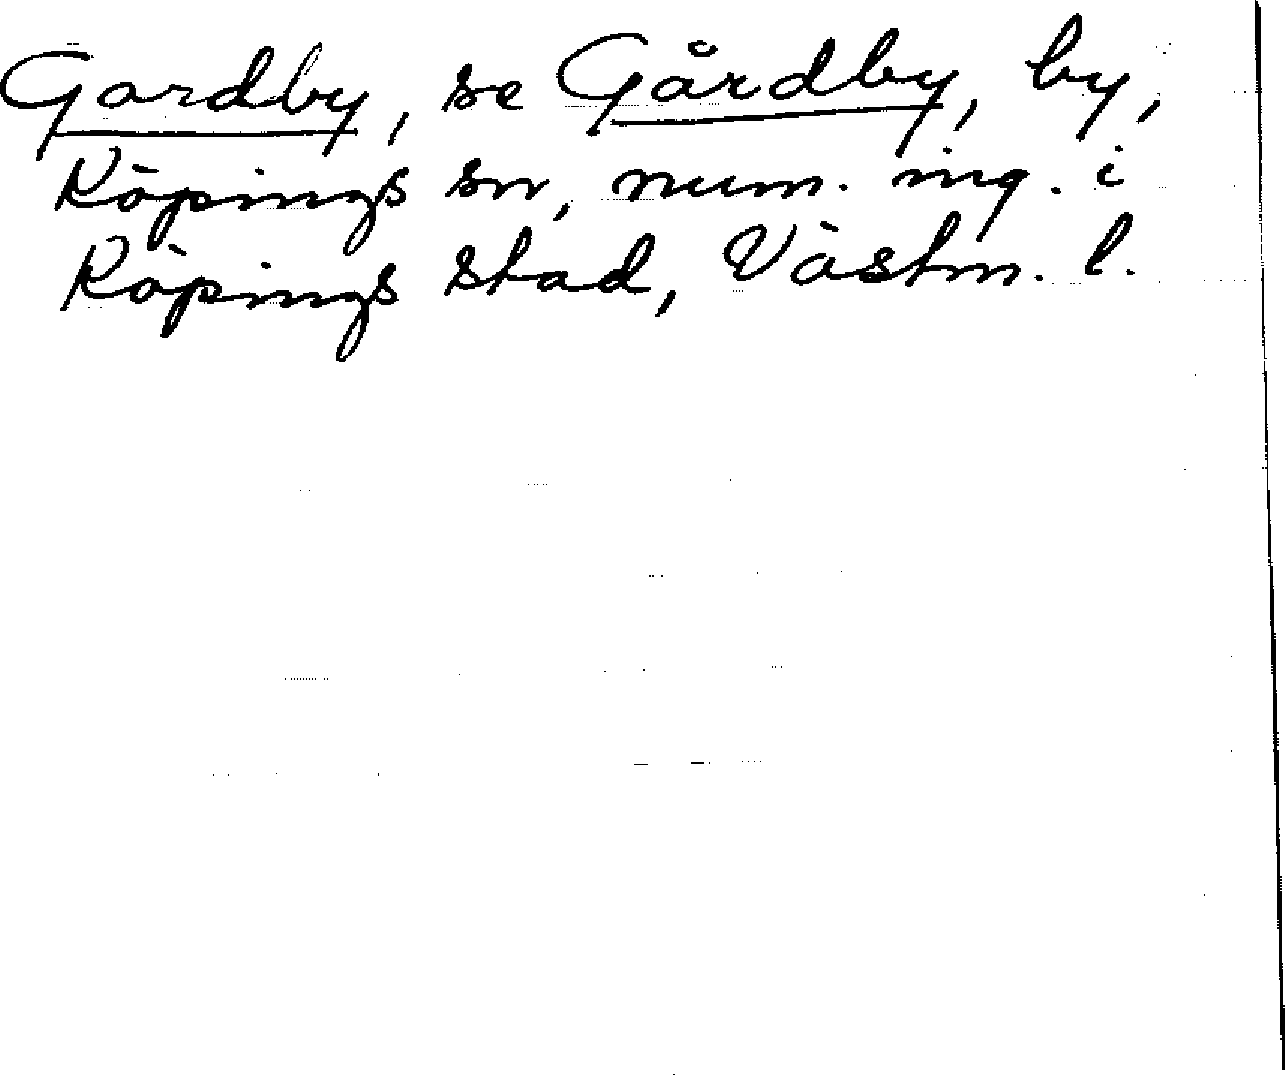 Gardby, se Gårdby, by,
Köpings sn, num. ing. i
Köpings stad, Västm. l.